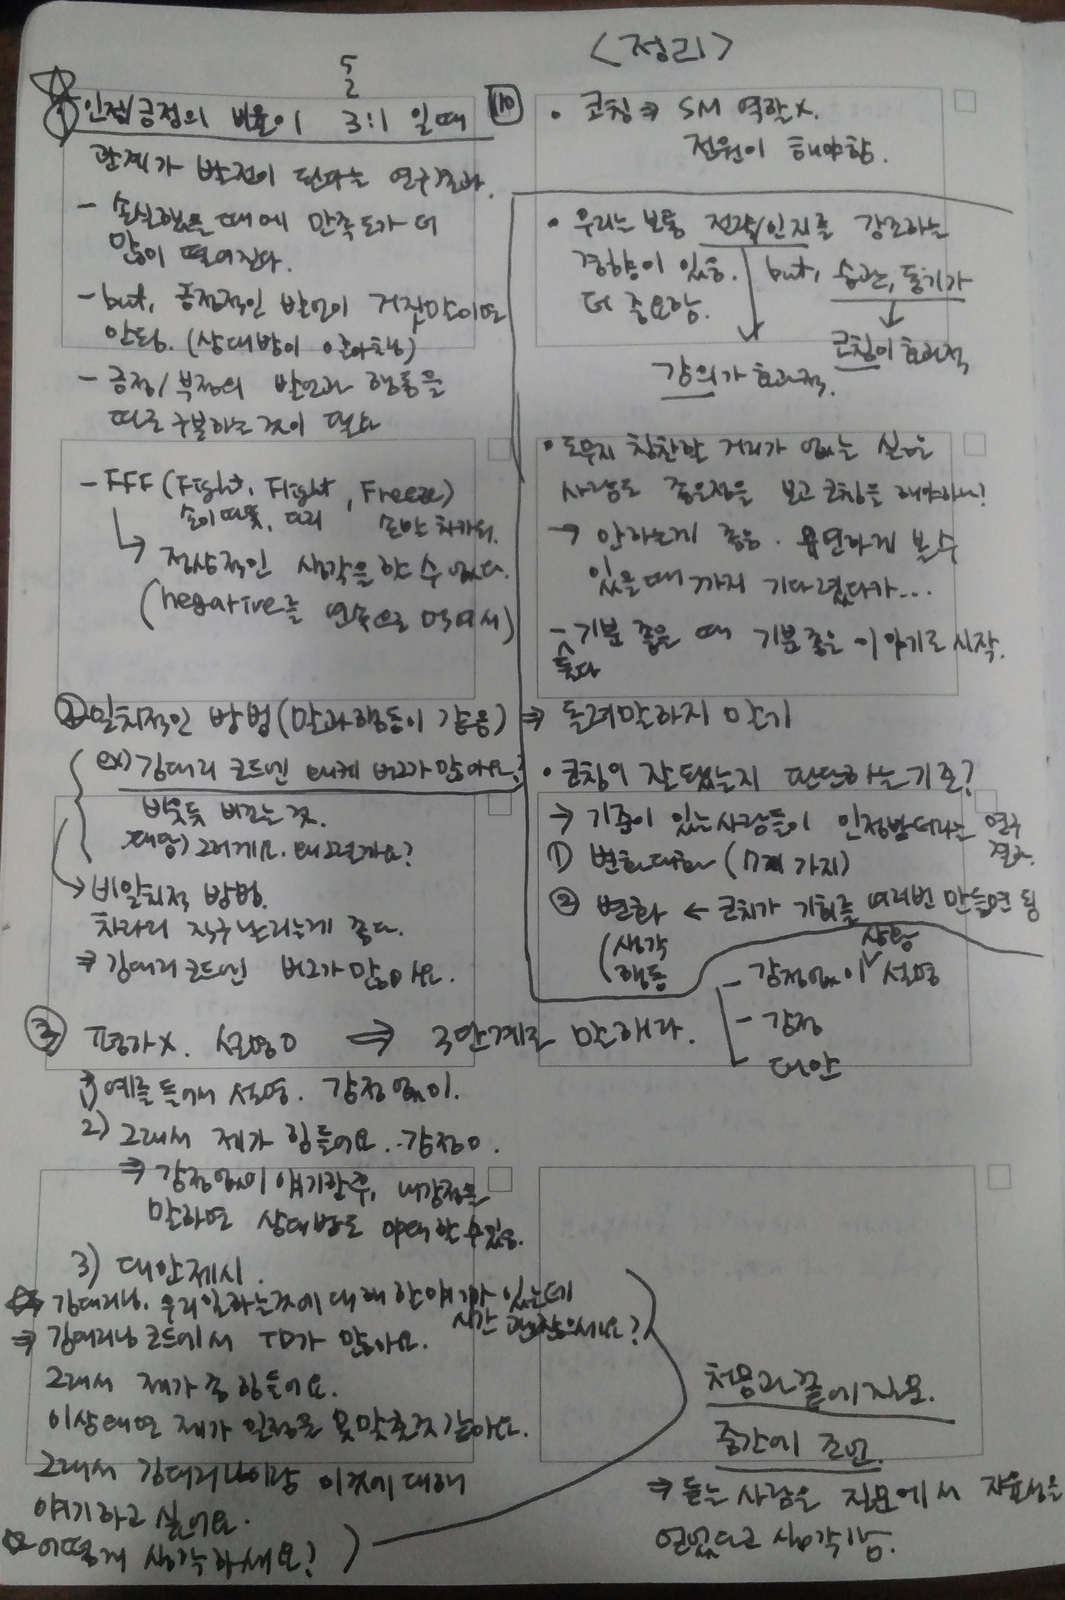 <정리>
5
2
① 인정/긍정의 비율이 3:1 일때
관계가 발전이 된다는 연구결과.
- 손실했을 때에 만족도가 더
많이 떨어진다.
- but, 긍정적인 발언이 거짓말이면
안됨. (상대방이 알아챔)
- 긍정/부정의 발언과 행동을
따로 구분하는 것이 필요
- FFF (Fight, Flight, Freeze)
손이 따뜻, 다리 손발 차가워.
↳ 정상적인 생각을 할 수 없다.
(negative를 연속으로 먹여서)
② 일치적인 방법 (말과 행동이 같음) ⇒ 돌려말하지 말기
ex) 김대리 코드엔 왜케 버그가 많아요?
비웃듯 비꼬는 것.
대응) 그러게요. 왜 그런가요?
→ 비일치적 방법.
차라리 직구 날리는게 좋다.
⇒ 김대리 코드엔 버그가 많아요.
③ 평가x. 설명o ⇒ 3단계로 말해라.
1) 예를 들어서 설명. 감정없이.
2) 그래서 제가 힘들어요. 감정o.
⇒ 감정없이 얘기한 후, 내감정을
말하면 상대방도 이해할 수 있음.
3) 대안제시.
☆ 김대리님. 우리 일하는것에 대해 할 얘기가 있는데
시간 괜찮으세요?
⇒ 김대리님 코드에서 TD가 많아요.
그래서 제가 좀 힘들어요.
이상태면 제가 일정을 못맞출것 같아요.
그래서 김대리님이랑 이것에 대해
얘기하고 싶어요.
☆ 어떻게 생각하세요?
10
• 코칭 ⇒ SM 역할x.
전원이 해야함.
• 우리는 보통 전략/인지를 강조하는
경향이 있음. but, 습관, 동기가
더 중요함.
코칭이 효과적
강의가 효과적.
• 도무지 칭찬할 거리가 없는 싫은
사람도 좋은점을 보고 코칭을 해야하나?
→ 안하는게 좋음. 유연하게 볼 수
있을때 까지 기다렸다가...
- 둘다 기분 좋은 때 기분 좋은 이야기로 시작.
• 코칭이 잘 됐는지 판단하는 기준?
→ 기준이 있는 사람들이 인정받더라는 연구
결과.
① 변화대화 (17개 가지)
② 변화 ← 코치가 기회를 여러번 만들면 됨
(생각
(행동
상황
- 감정없이 설명
- 감정
- 대안
처음과 끝에 질문.
중간에 조언.
⇒ 듣는 사람은 질문에서 자율성을
얻었다고 생각함.